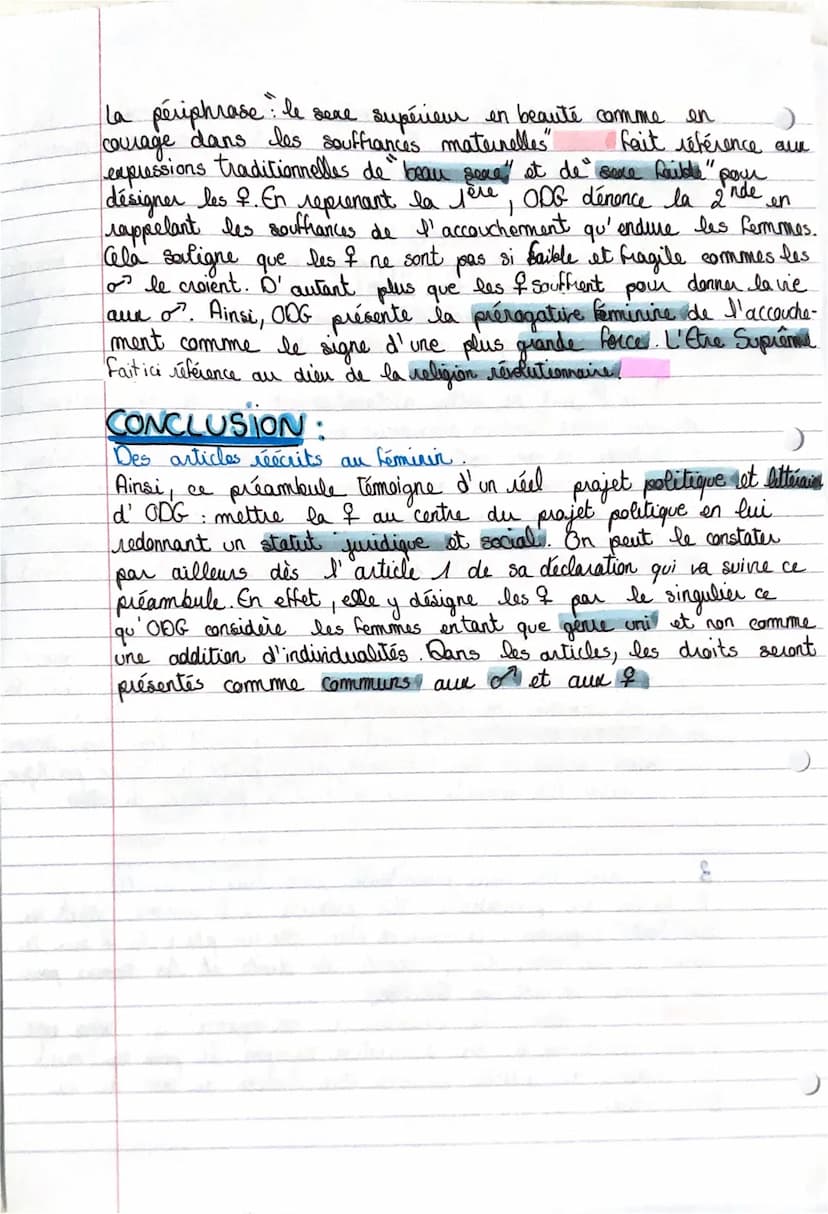 La périphrase "le sexe supérieur en beauté comme en
courage dans les souffrances maternelles" fait référence aux
expressions traditionnelles de "beau sexe" et de "sexe faible" pour
désigner les ♀. En reprenant la 1ère, ODG dénonce la 2nde en
rappelant les souffrances de l'accouchement qu'endure les femmes.
Cela souligne que les ♀ ne sont pas si faible et fragile commes les
♂ le croient. D'autant plus que les ♀ souffrent pour donner la vie
aux ♂. Ainsi, ODG présente la prérogative féminine de l'accouche-
ment comme le signe d'une plus grande force. L'Etre Suprême
fait ici référence au dieu de la religion révolutionnaire.
CONCLUSION :
Des articles réécrits au féminin.
Ainsi, ce préambule témoigne d'un réel projet politique et littéraire
d'ODG : mettre la ♀ au centre du projet politique en lui
redonnant un statut juridique et social. On peut le constater
par ailleurs dès l'article 1 de sa déclaration qui va suivre ce
préambule. En effet, elle y désigne les ♀ par le singulier ce
qu'ODG considère les femmes entant que genre uni et non comme
une addition d'individualités. Dans les articles, les droits seront
présentés comme communs aux ♂ et aux ♀